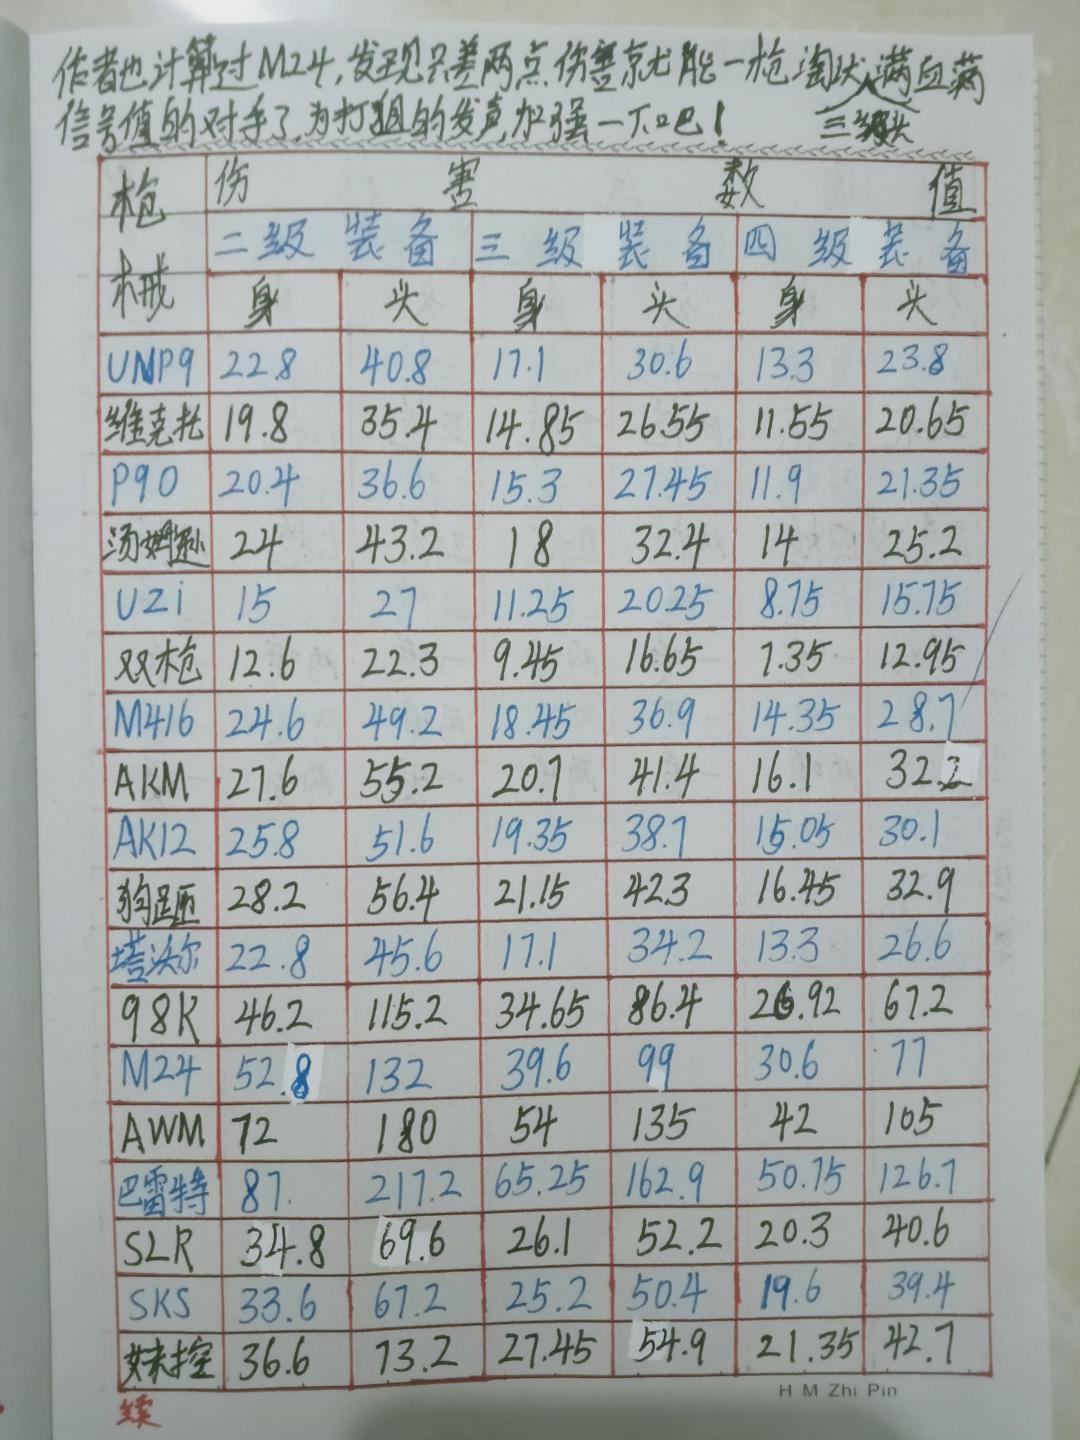 作者也计算过M24,发现只差两点伤害就能一枪淘汰满血满
三级头
信号值的对手了,为打狙的发声加强一下吧!
枪械 伤害数值
二级装备 三级装备 四级装备
身 头 身 头 身 头
UMP9 22.8 40.8 17.1 30.6 13.3 23.8
维克托 19.8 35.4 14.85 26.55 11.55 20.65
P90 20.4 36.6 15.3 27.45 11.9 21.35
汤姆逊 24 43.2 18 32.4 14 25.2
UZi 15 27 11.25 20.25 8.75 15.75
双枪 12.6 22.3 9.45 16.65 7.35 12.95
M416 24.6 49.2 18.45 36.9 14.35 28.7
AKM 27.6 55.2 20.7 41.4 16.1 32.2
AK12 25.8 51.6 19.35 38.7 15.05 30.1
狗 28.2 56.4 21.15 42.3 16.45 32.9
塔沃尔 22.8 45.6 17.1 34.2 13.3 26.6
98K 46.2 115.2 34.65 86.4 26.92 67.2
M24 52.8 132 39.6 99 30.6 77
AWM 72 180 54 135 42 105
巴雷特 87. 217.2 65.25 162.9 50.75 126.7
SLR 34.8 69.6 26.1 52.2 20.3 40.6
SKS 33.6 67.2 25.2 50.4 19.6 39.4
妹控 36.6 73.2 27.45 54.9 21.35 42.7
续
H M Zhi Pin